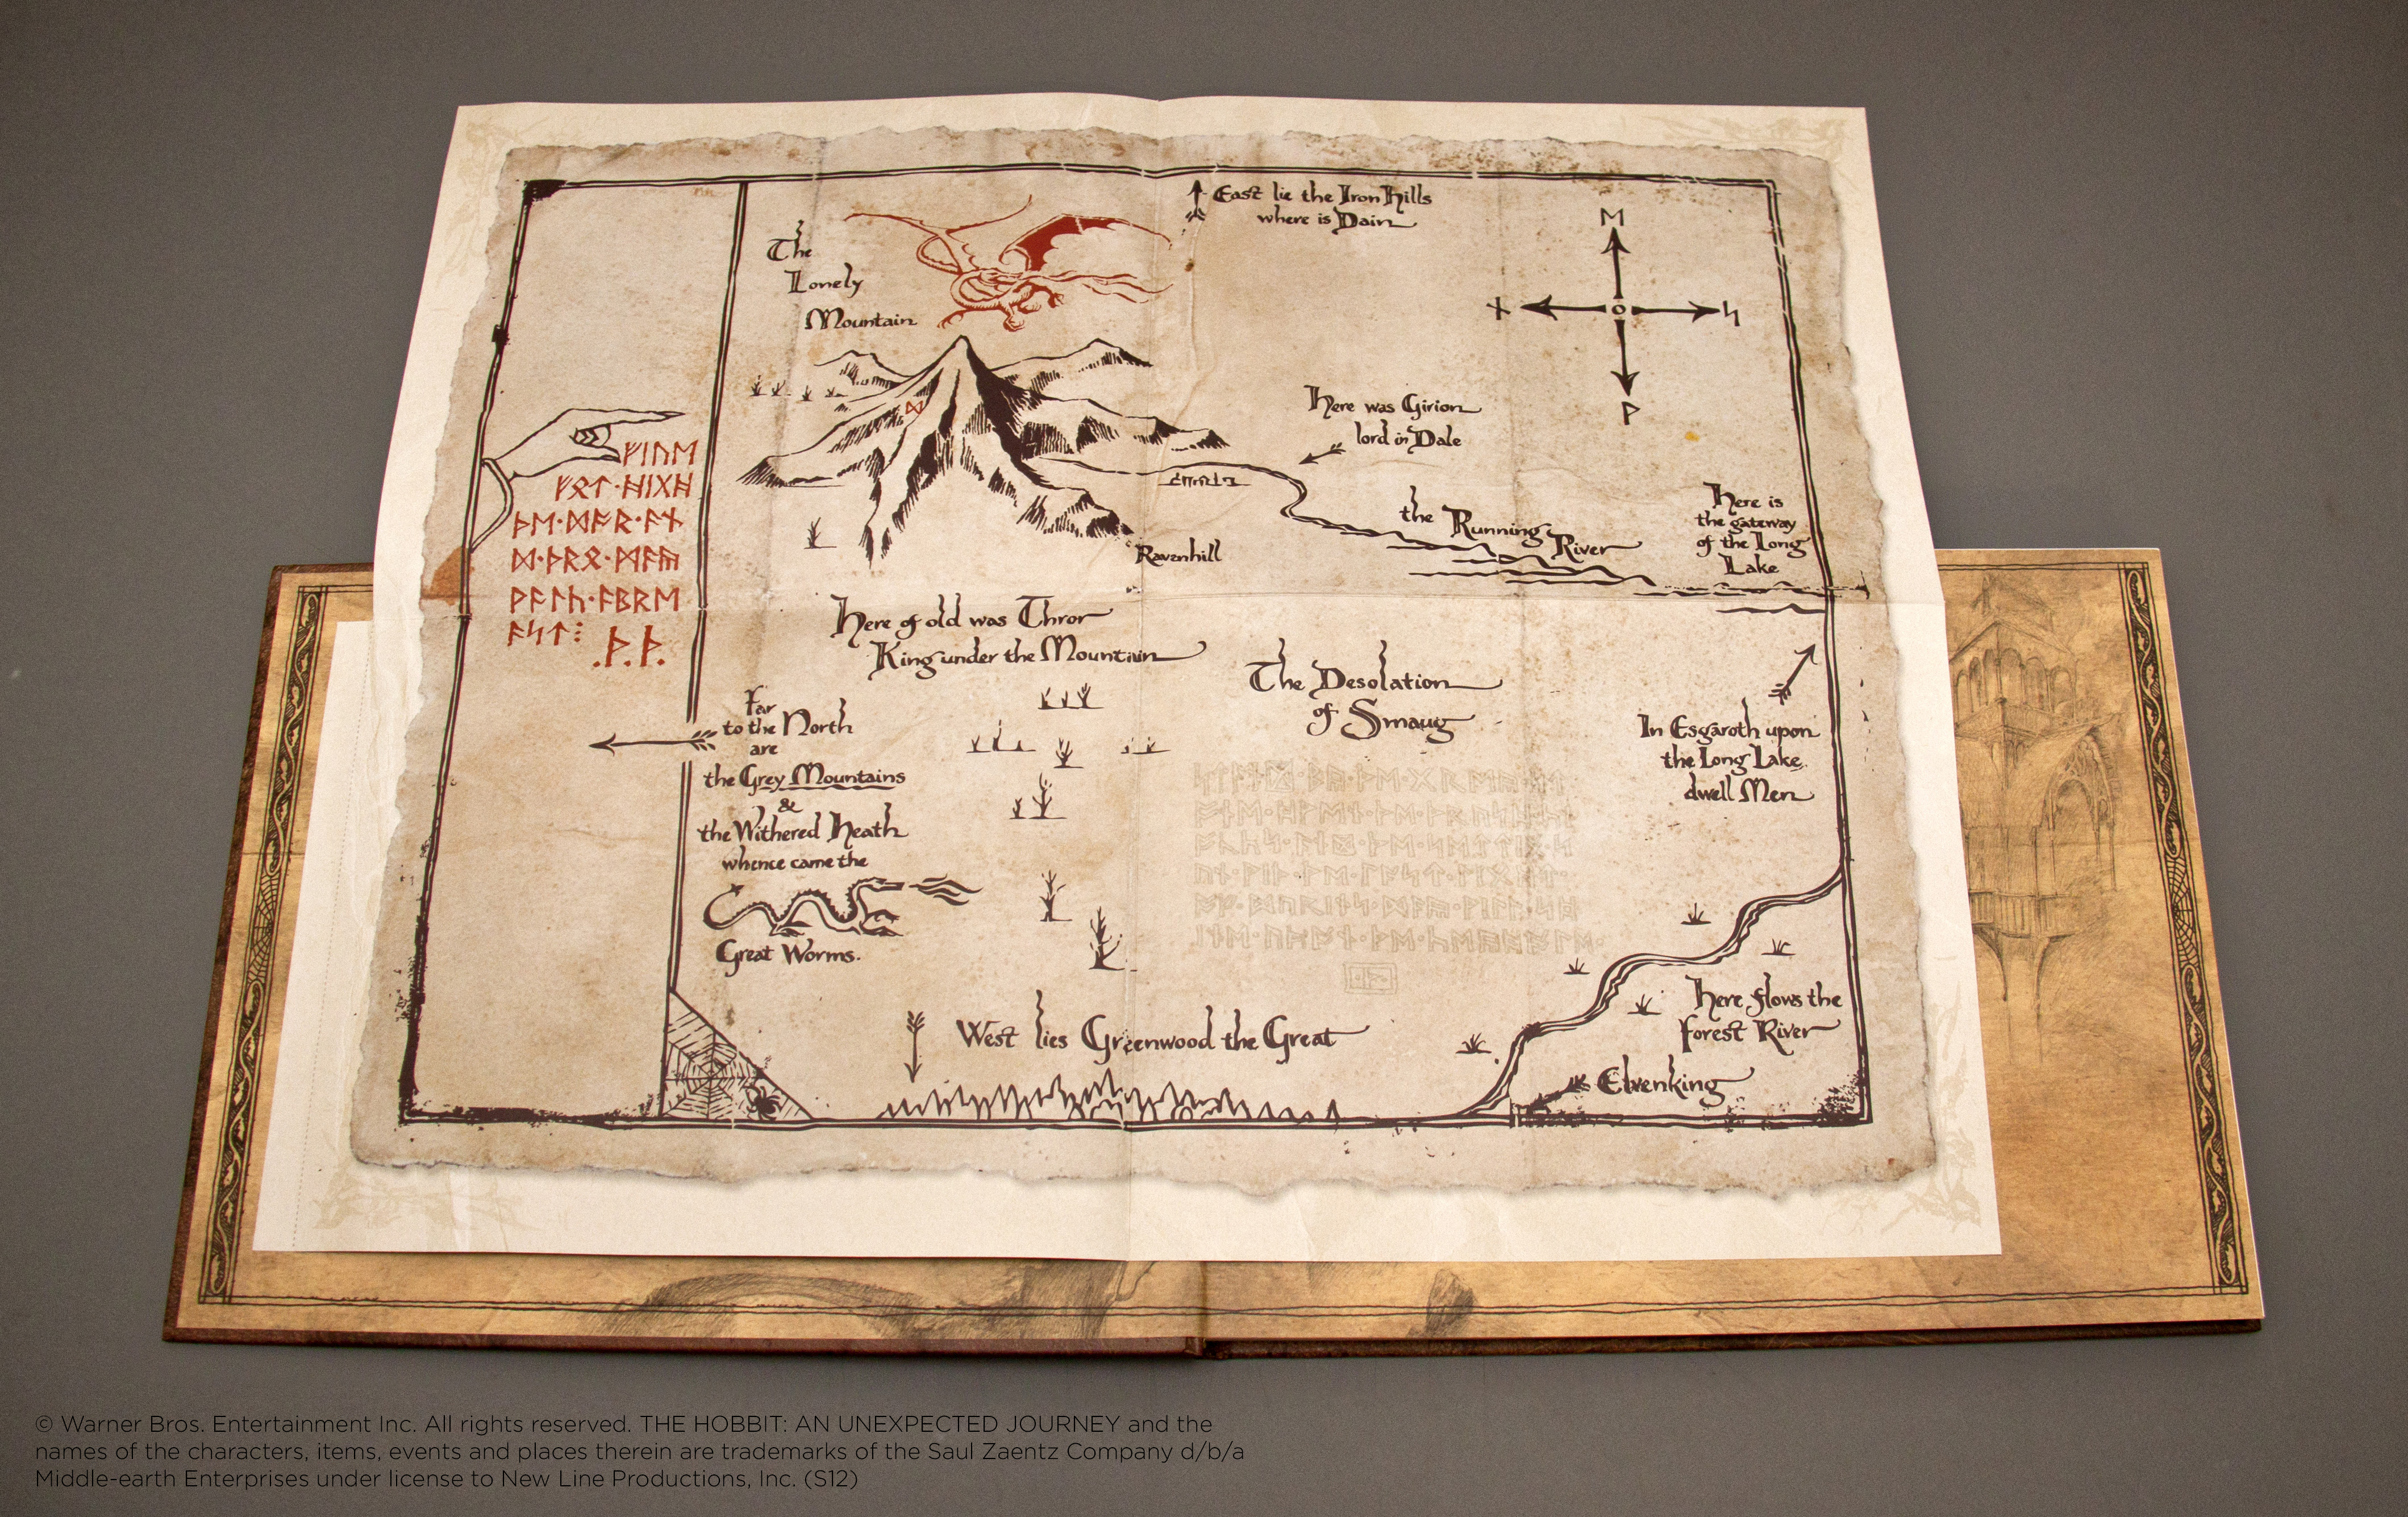 East lie the Iron Hills
where is Dain
The
Lonely
Mountain
ᛖ
ᚾ
ᛋ
ᚹ
ᛞ
Here was Girion
lord in Dale
the Running River
Here is
the gateway
of the Long
Lake
Ravenhill
ᚠᛁᚢᛖ
ᚠᛟᛏ·ᚻᛁᚷᚻ
ᚦᛖ·ᛞᚩᚱ·ᚪᚾ
ᛞ·ᚦᚱᛟ·ᛗᚪᚣ
ᚹᚪᛚᚳ·ᚪᛒᚱᛖ
ᚪᛋᛏ⁝ .ᚦ.ᚦ.
Here of old was Thror
King under the Mountain
The Desolation
of Smaug
Far
to the North
are
the Grey Mountains
&
the Withered Heath
whence came the
Great Worms.
In Esgaroth upon
the Long Lake
dwell Men
West lies Greenwood the Great
Here flows the
Forest River
Elvenking
© Warner Bros. Entertainment Inc. All rights reserved. THE HOBBIT: AN UNEXPECTED JOURNEY and the
names of the characters, items, events and places therein are trademarks of the Saul Zaentz Company d/b/a
Middle-earth Enterprises under license to New Line Productions, Inc. (S12)